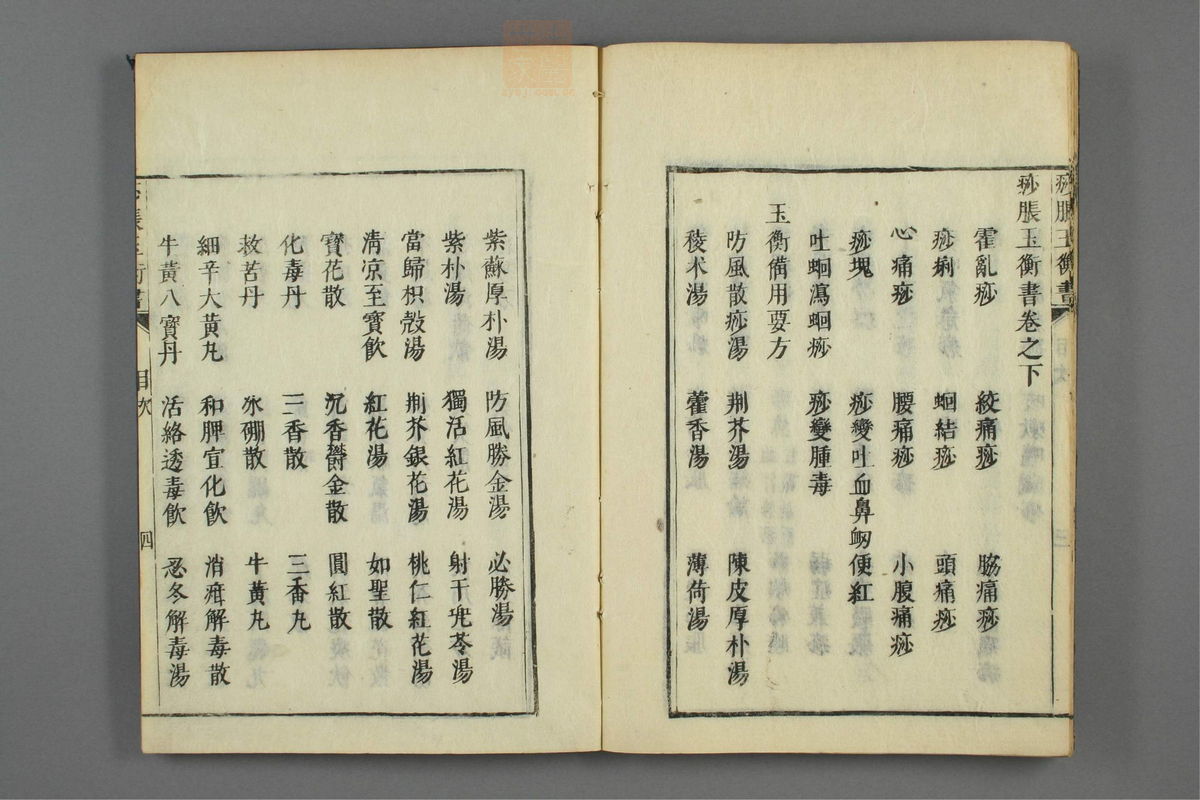 痧脹玉衡書
痧脹玉衡書卷之下
霍亂痧 絞痛痧 脇痛痧
痧痢 蛔結痧 頭痛痧
心痛痧 腰痛痧 小腹痛痧
痧塊 痧變吐血鼻衂便紅
吐蛔瀉蛔痧 痧變腫毒
玉衡備用要方
防風散痧湯 荆芥湯 陳皮厚朴湯
稜术湯 藿香湯 薄荷湯
紫蘇厚朴湯 防風勝金湯 必勝湯
紫朴湯 獨活紅花湯 射干兠苓湯
當歸枳殼湯 荆芥銀花湯 桃仁紅花湯
清凉至寶飲 紅花湯 如聖散
寶花散 沉香欝金散 圓紅散
化毒丹 三香散 三香丸
救苦丹 氷硼散 牛黄丸
細辛大黄丸 和脾宣化飲 消疳解毒散
牛黄八寶丹 活絡透毒飲 忍冬解毒湯
目次
四